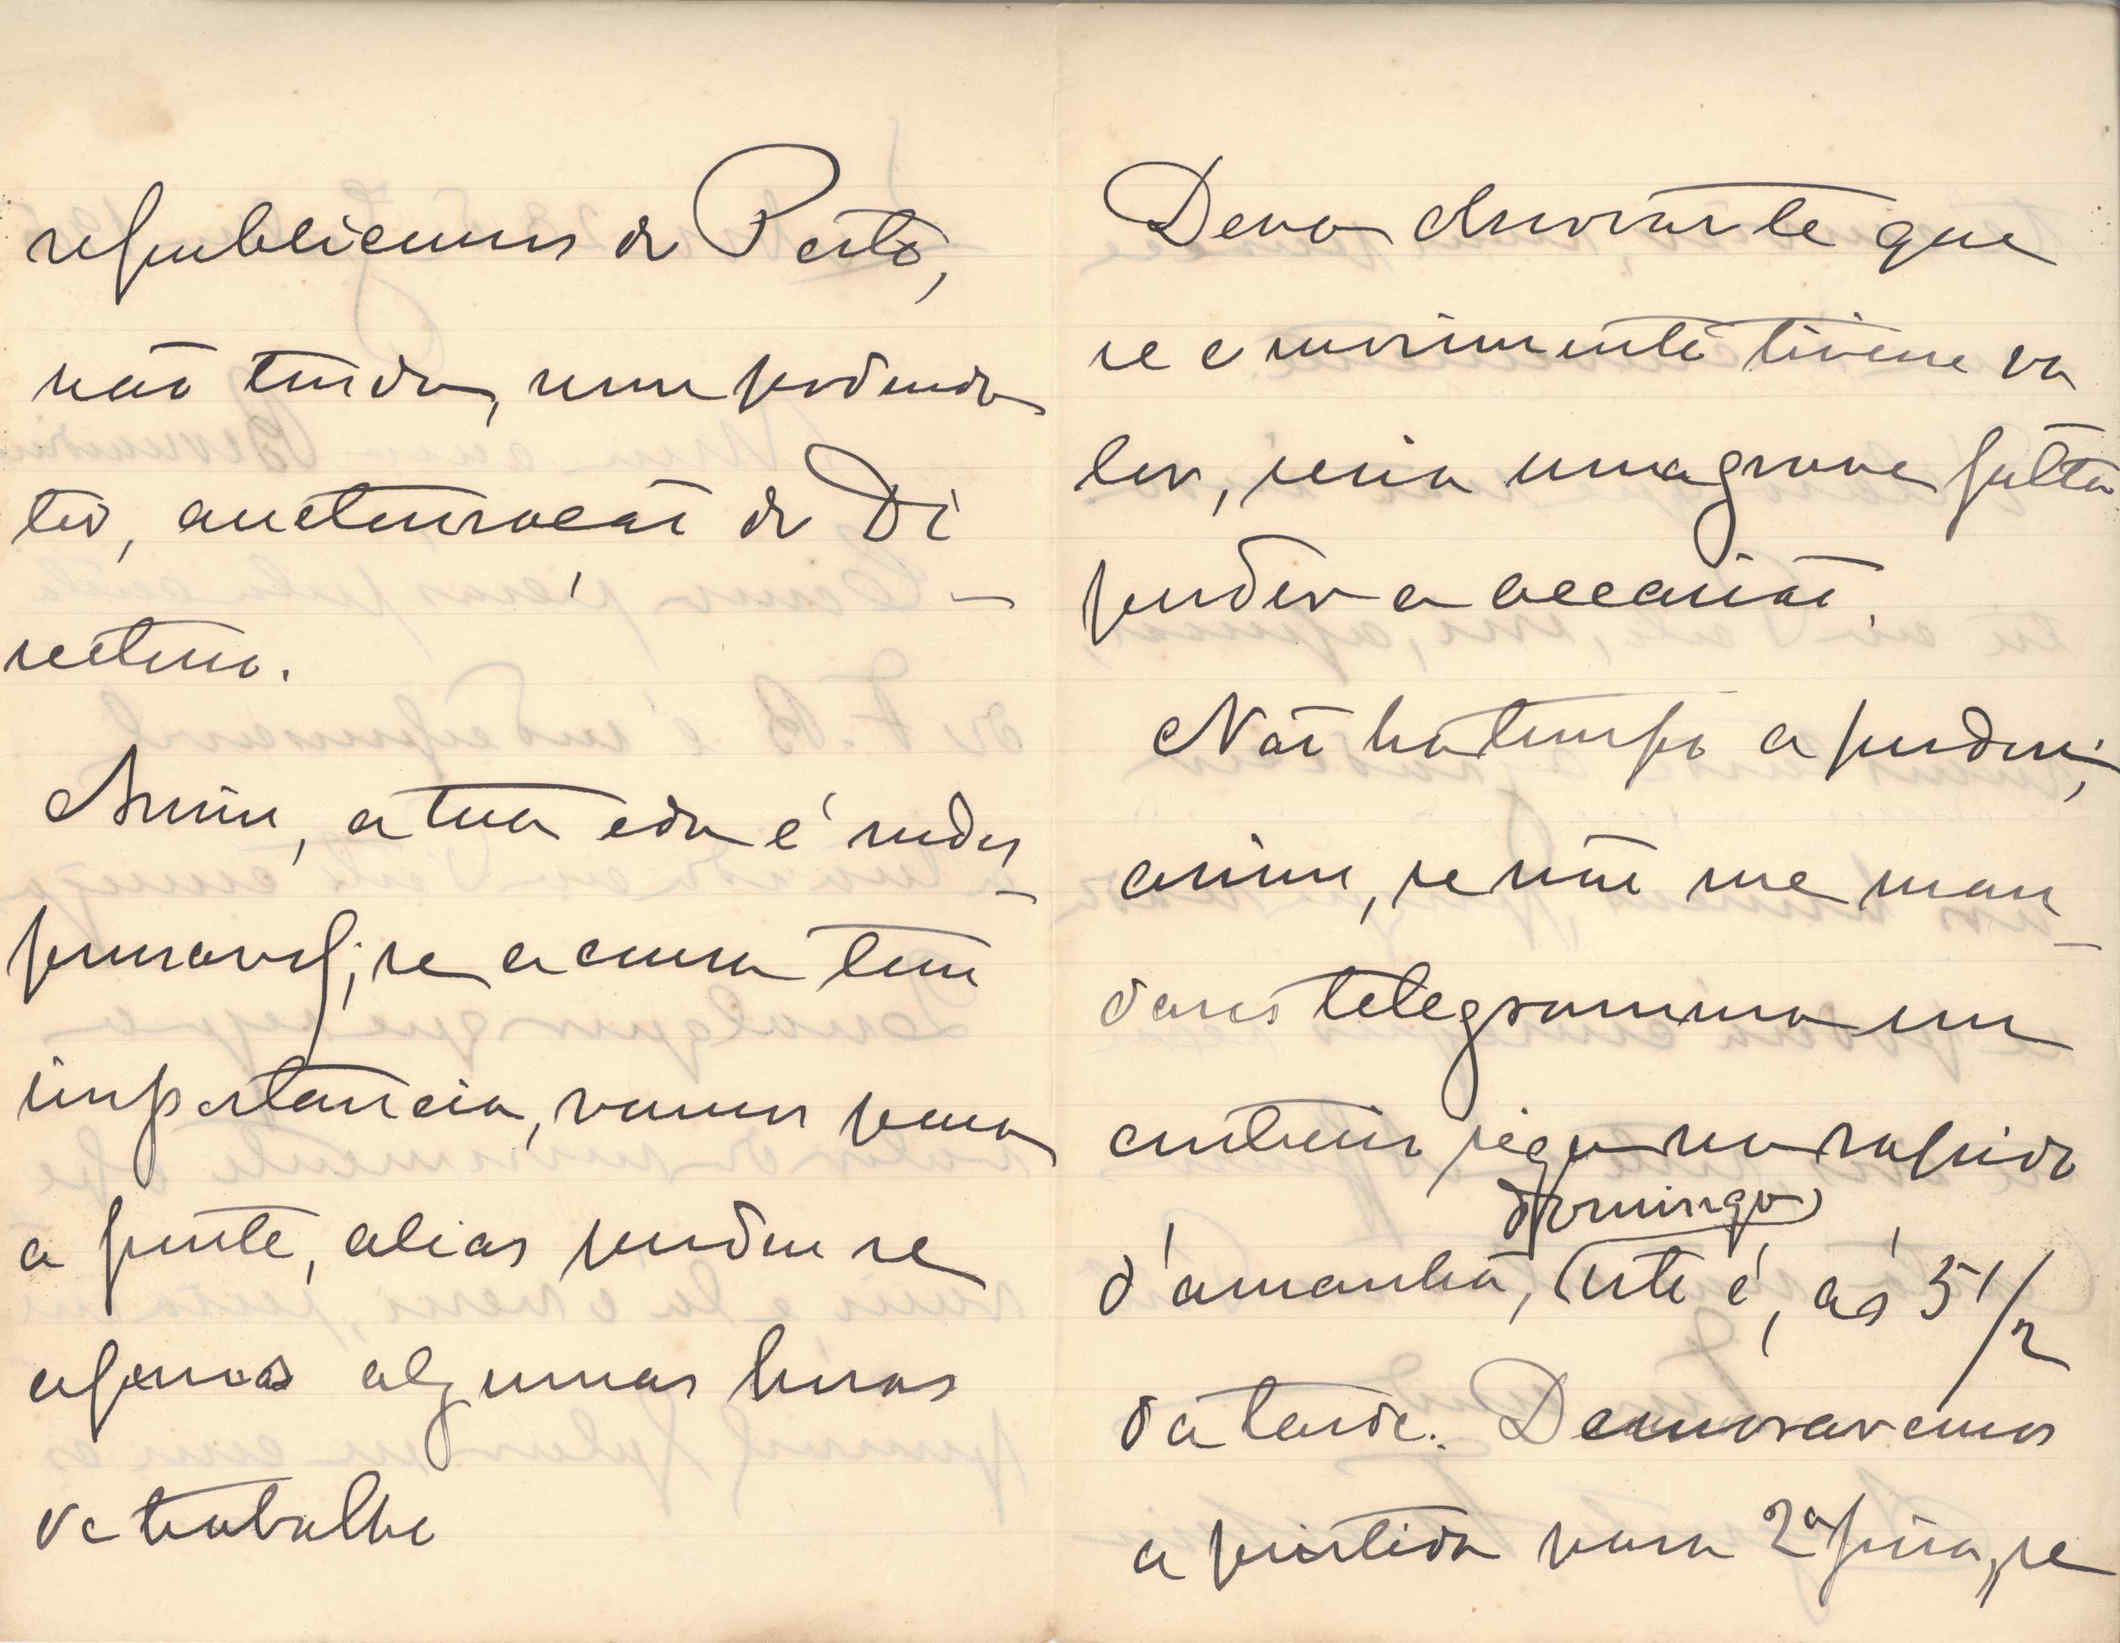 republicanos do Porto,
não tendo, nem podendo
ter, auctorisação do Di-
rectorio.
Assim, a tua ida é indis-
pensavel; se a cousa tem
importancia, vamos para
a frente, alias perdem se
apenas algumas horas
de trabalho
Devo observar te que
se o movimento tivesse va
lor, seria uma grave falta
perder a occasião.
Não ha tempo a perder;
assim, se não me man-
dares telegramma em
contrario sigo no rapido
domingo
d'amanhã, (isto é, ás 5 1/2
da tarde. Demoraremos
a partida para 2ª feira, se